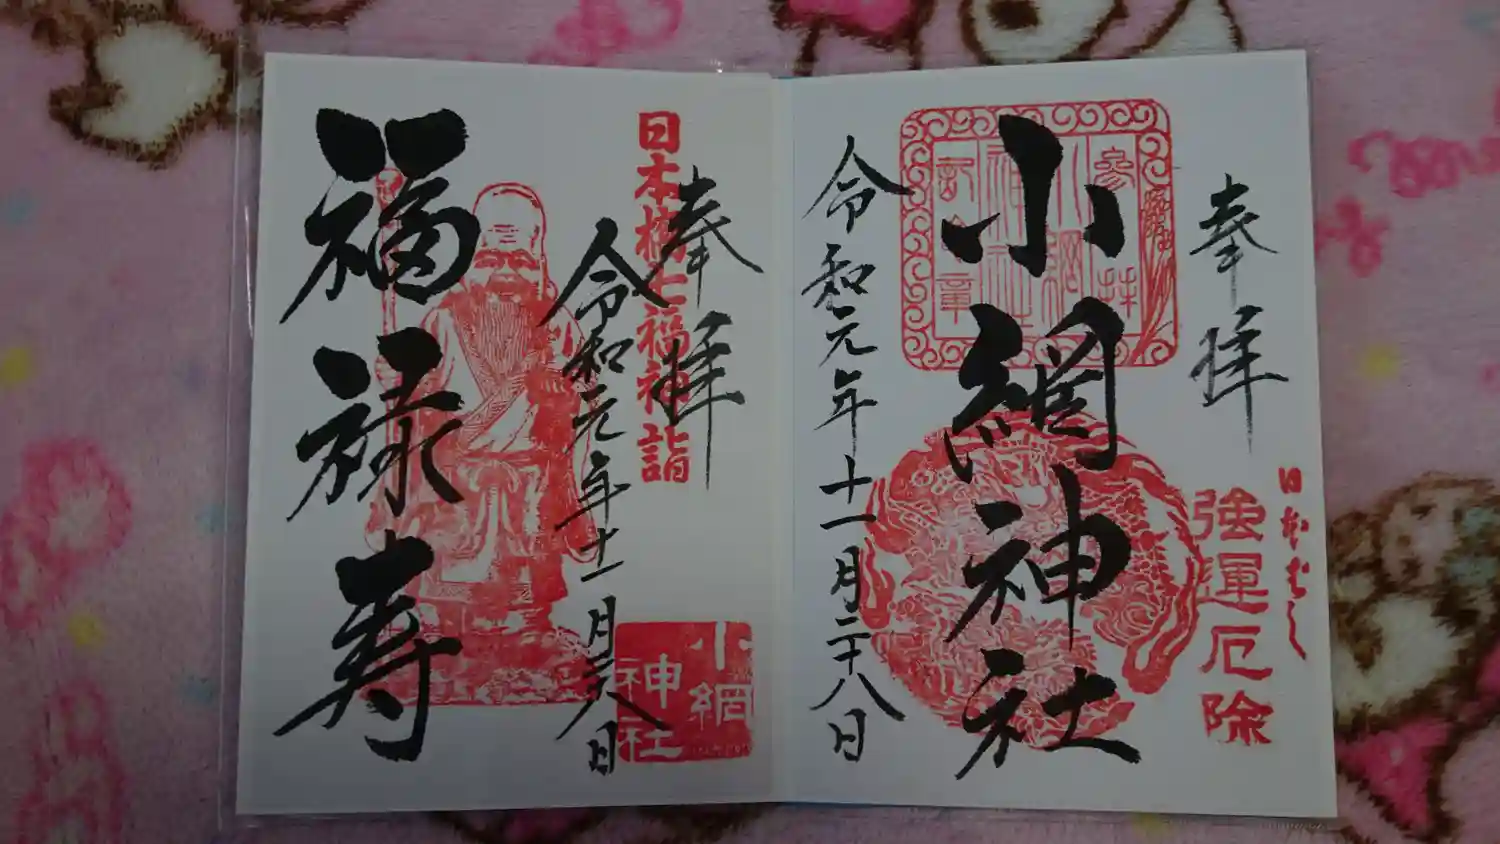 奉拝
日本ばし
強運厄除
小網神社
参拝
小網
神社
記章
令和元年十一月二十八日
奉拝
日本橋七福神詣
令和元年十一月二八日
福禄寿
小網
神社